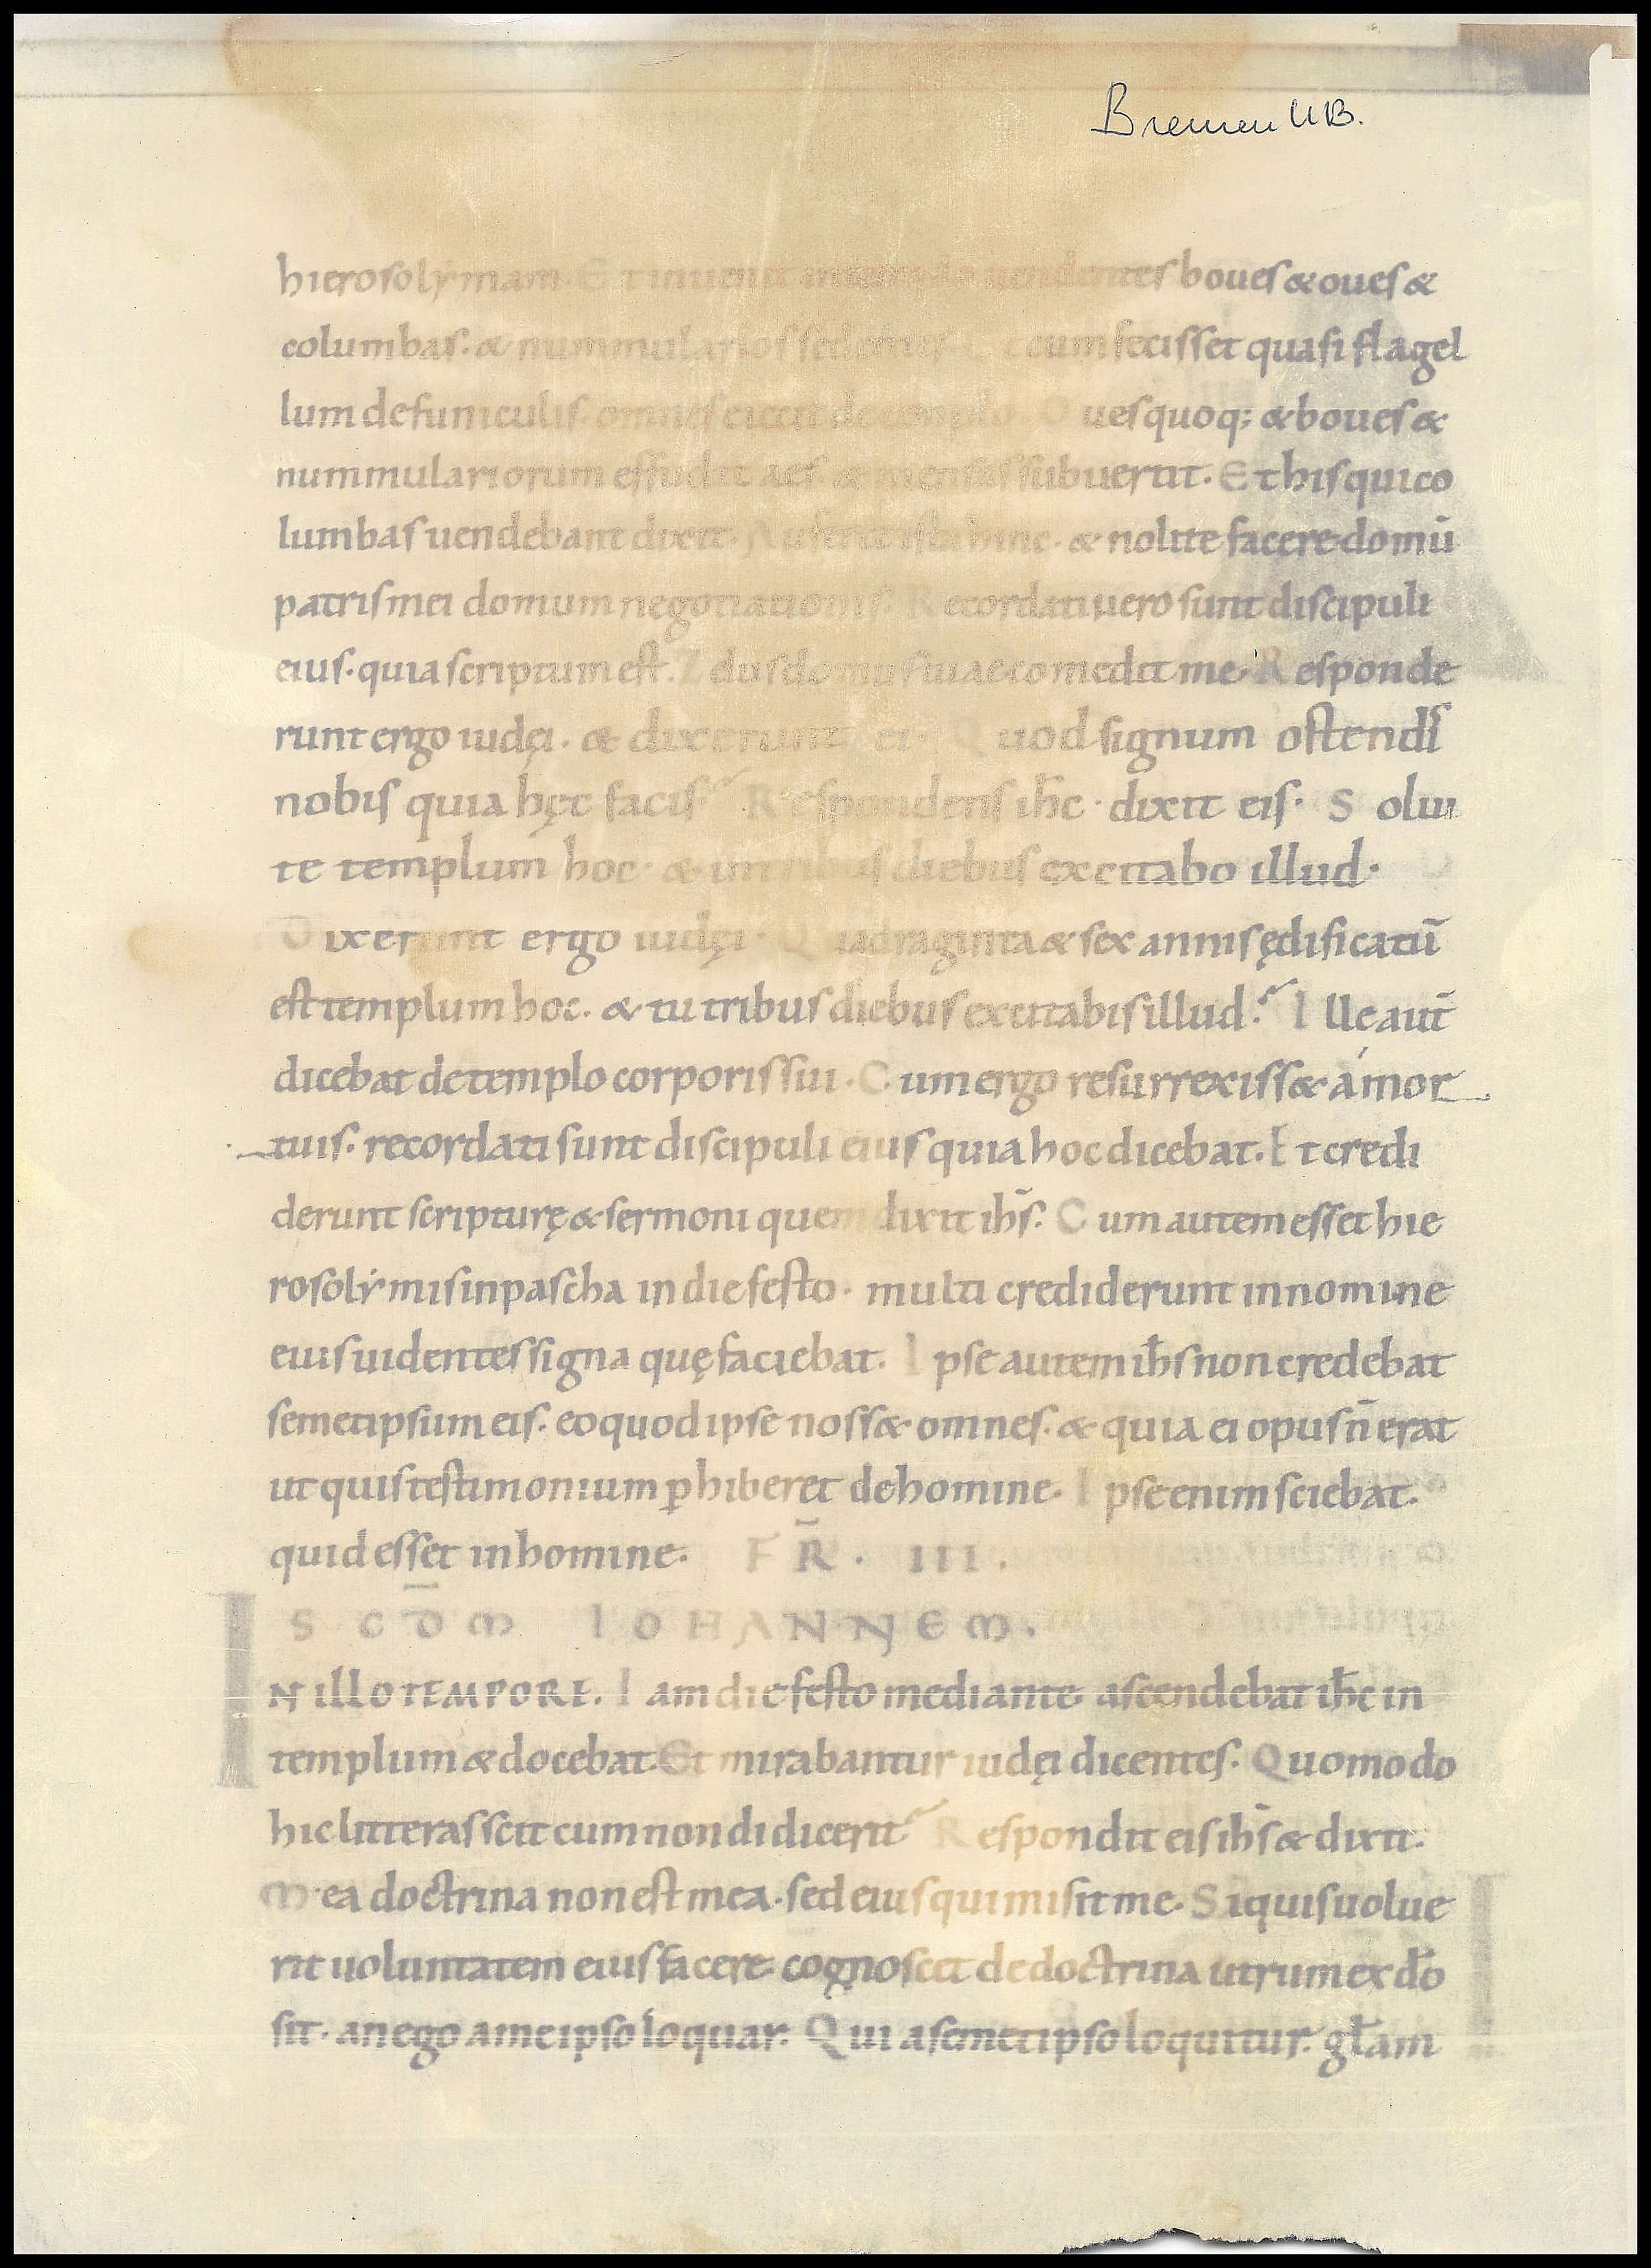 Bremen UB.
hierosolẏmam. Et inuenit in templo uendentes boues & oues &
columbas. & nummularios sedentes. Et cum fecisset quasi flagel
lum de funiculis. omnes eiecit de templo. Oues quoq; & boues &
nummulariorum effudit aes. & mensas subuertit. Et his qui co
lumbas uendebant dixit. Auferte ista hinc. & nolite facere domū
patris mei domum negotiationis. Recordati uero sunt discipuli
eius. quia scriptum est. Zelus domus tuae comedit me. Responde
runt ergo iudęi. & dixerunt ei. Quod signum ostendis
nobis quia hęc facis? Respondens ih̄c. dixit eis. Solui
te templum hoc. & in tribus diebus excitabo illud.
Dixerunt ergo iudęi. Quadraginta & sex annis ędificatū
est templum hoc. & tu tribus diebus excitabis illud? Ille aut̄
dicebat de templo corporis sui. Cum ergo resurrexiss& a mor
tuis. recordati sunt discipuli eius quia hoc dicebat. Et credi
derunt scripturę & sermoni quem dixit ih̄s. Cum autem esset hie
rosolẏmis in pascha in die festo. multi crediderunt in nomine
eius uidentes signa quę faciebat. Ipse autem ih̄s non credebat
semetipsum eis. eo quod ipse noss& omnes. & quia ei opus n̄ erat
ut quis testimonium ꝑhiberet de homine. Ipse enim sciebat.
quid esset in homine. FR̄. III.
SCD̄M IOHANNEM.
IN ILLO TEMPORE. Iam die festo mediante ascendebat ih̄c in
templum & docebat. Et mirabantur iudęi dicentes. Quomodo
hic litteras scit cum non didicerit? Respondit eis ih̄s & dixit.
Mea doctrina non est mea. sed eius qui misit me. Si quis uolue
rit uoluntatem eius facere cognoscet de doctrina utrum ex dō
sit. an ego a me ipso loquar. Qui a semetipso loquitur. gl̄am